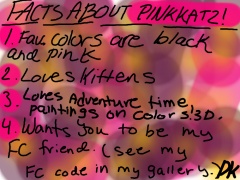 FACTS ABOUT PINKKATZ!
1. Fav. colors are black
and pink
2. Loves kittens
3. Loves Adventure time
paintings on Color 3:3D.
4. Wants you to be my
FC friend. (see my
FC code in my gallery.)
PK